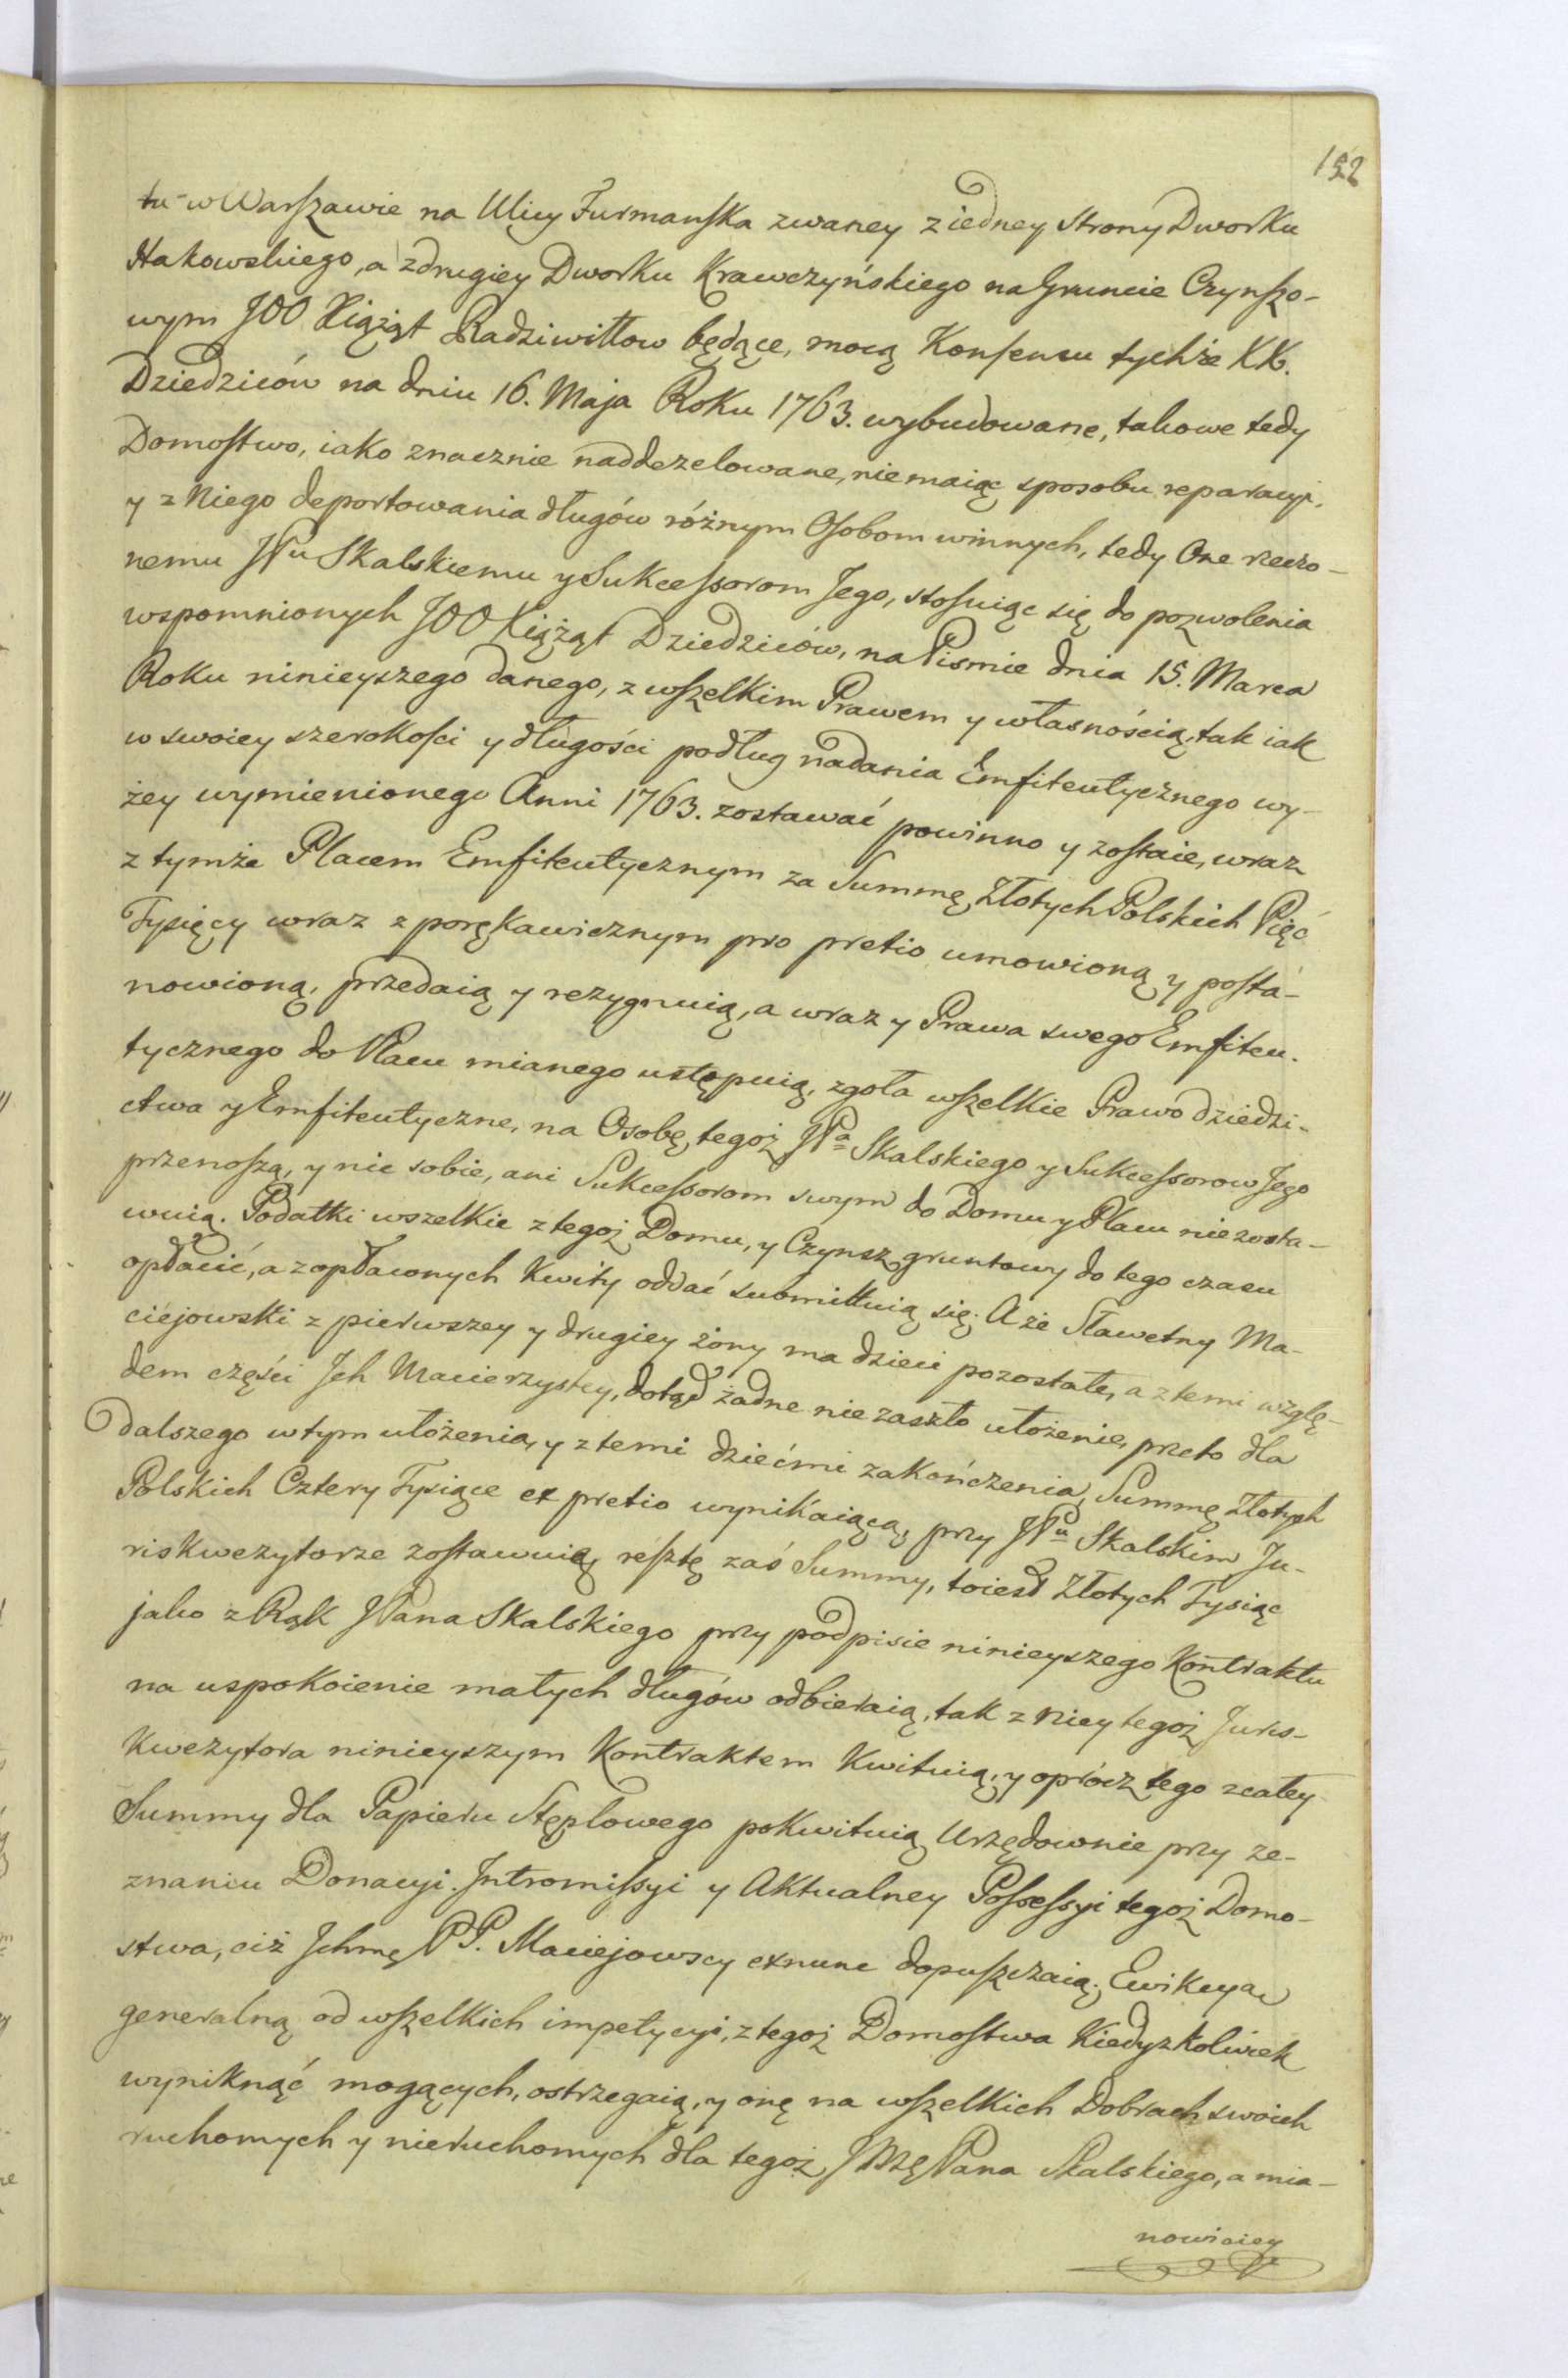 152
tu w Warszawie na Ulicy Furmanska zwaney z iedney strony Dworku
Hakowskiego, a z drugiey Dworku Krawczyńskiego na Gruncie Czynszo-
wym JOO Xiążąt Radziwiłłow będące, mocą Konsensu tychże XX.
Dziedziców na dniu 16. Maja Roku 1763. wybudowane, takowe tedy
Domostwo, iako znacznie naddezelowane, nie maiąc sposobu reparacyi,
y z Niego deportowania długów różnym Osobom winnych, tedy One rzeczo-
nemu JPu Skalskiemu y Sukcessorom Jego, stosuiąc się do pozwolenia
wspomnionych JOO Xiążąt Dziedziców, na Pismie dnia 15. Marca
Roku ninieyszego danego, z wszelkim Prawem y własnością, tak iak
w swoiey szerokości y długości podług nadania Emfiteutycznego wy-
żey wymienionego Anni 1763. zostawać powinno y zostaie, wraz
z tymże Placem Emfiteutycznym za Summę Złotych Polskich Pięć
Tysięcy wraz z porękawicznym pro pretio umowioną y posta-
nowioną, przedaią y rezygnuią, a wraz y Prawa swego Emfiteu-
tycznego do Placu mianego ustępuią, zgoła wszelkie Prawo dziedzi-
ctwa y Emfiteutyczne, na Osobę tegoż JPa Skalskiego y Sukcessorow Jego
przenoszą, y nic sobie, ani Sukcessorom swym do Domu y Placu nie zosta-
wuią. Podatki wszelkie z tegoż Domu, y Czynsz gruntowy do tego czasu
opłacić, a z opłaconych Kwity oddać submittuią się. A że Sławetny Ma-
ciejowski z pierwszey y drugiey żony ma dzieci pozostałe, a z temi wzglę-
dem części Jch Macierzystey, dotąd żadne nie zaszło ułożenie, przeto dla
dalszego w tym ułożenia, y z temi dziećmi zakończenia, Summę Złotych
Polskich Cztery Tysiące ex pretio wynikaiącą, przy JPu Skalskim Ju-
riskwezytorze zostawuią, resztę zaś Summy, toiest Złotych Tysiąc
jako z Rąk JPana Skalskiego przy podpisie ninieyszego Kontraktu
na uspokoienie małych długów odbieraią, tak z Niey tegoż Juris-
kwezytora ninieyszym Kontraktem Kwituią, y oprócz tego z całey
Summy dla Papieru Stęplowego pokwituią Urzędownie przy ze-
znaniu Donacyi. Jntromissyi y Aktualney Possessyi tegoż Domo-
stwa, ciż Jchmę PP. Maciejowscy exnunc dopuszczaią. Ewikcyą
generalną od wszelkich impetycyi, z tegoż Domostwa Kiedyzkolwiek
wyniknąć mogących, ostrzegaią, y onę na wszelkich Dobrach swoich
ruchomych y nieruchomych dla tegoż JMę Pana Skalskiego, a mia-
nowiciey